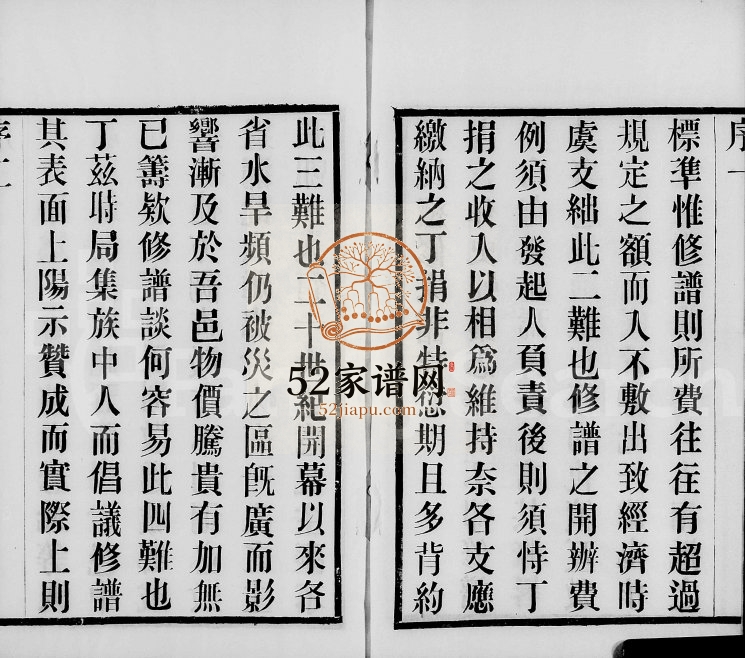 序一
標準惟修譜則所費往往有超過
規定之額而入不敷出致經濟時
虞支絀此二難也修譜之開辦費
例須由發起人負責後則須恃丁
捐之收入以相爲維持奈各支應
繳納之丁捐非特愆期且多背約
此三難也二十世紀開幕以來各
省水旱頻仍被災之區旣廣而影
響漸及於吾邑物價騰貴有加無
已籌欵修譜談何容易此四難也
丁茲時局集族中人而倡議修譜
其表面上陽示贊成而實際上則
52家谱网
52jiapu.com